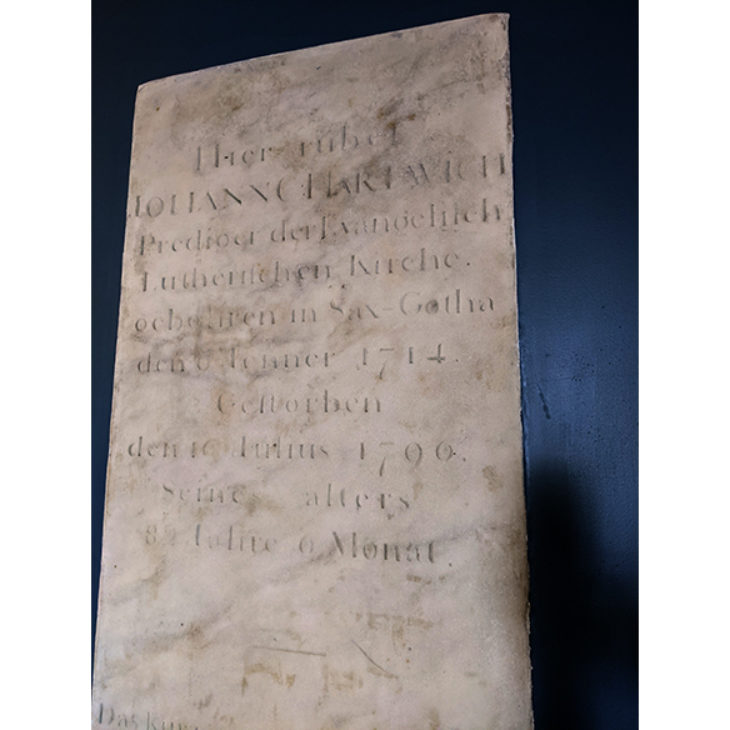 Hier ruhet
JOHANN C HARTWICH
Prediger der Evangeliſch
Lutheriſchen Kirche.
gebohren in Sax-Gotha
den 6 Jenner 1714.
Geſtorben
den 16 Julius 1796.
Seines alters
82 Jahre 6 Monat.
Das